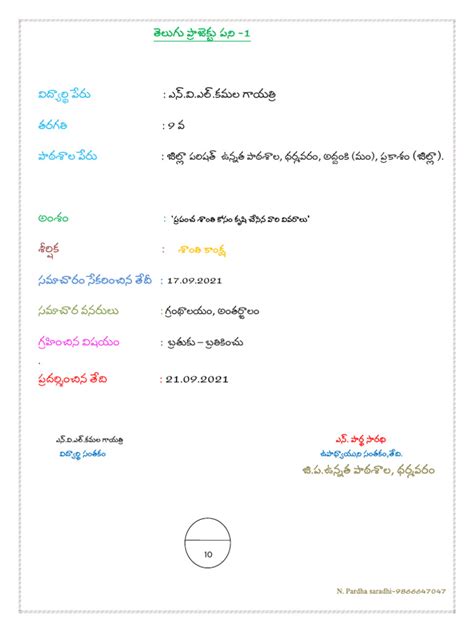 తెలుగు ప్రాజెక్టు పని -1
విద్యార్థి పేరు : ఎన్.వి.ఎల్.కమల గాయత్రి
తరగతి : 9 వ
పాఠశాల పేరు : జిల్లా పరిషత్ ఉన్నత పాఠశాల, ధర్మవరం, అద్దంకి (మం), ప్రకాశం (జిల్లా).
అంశం : 'ప్రపంచ శాంతి కోసం కృషి చేసిన వారి వివరాలు'
శీర్షిక : శాంతి కాంక్ష
సమాచారం సేకరించిన తేదీ : 17.09.2021
సమాచార వనరులు : గ్రంథాలయం, అంతర్జాలం
గ్రహించిన విషయం : బ్రతుకు – బ్రతికించు
.
ప్రదర్శించిన తేది : 21.09.2021
ఎన్.వి.ఎల్.కమల గాయత్రి ఎన్. పార్థ సారథి
విద్యార్థి సంతకం ఉపాధ్యాయుని సంతకం,తేది.
జి.ప.ఉన్నత పాఠశాల, ధర్మవరం
10
N. Pardha saradhi-9866647047